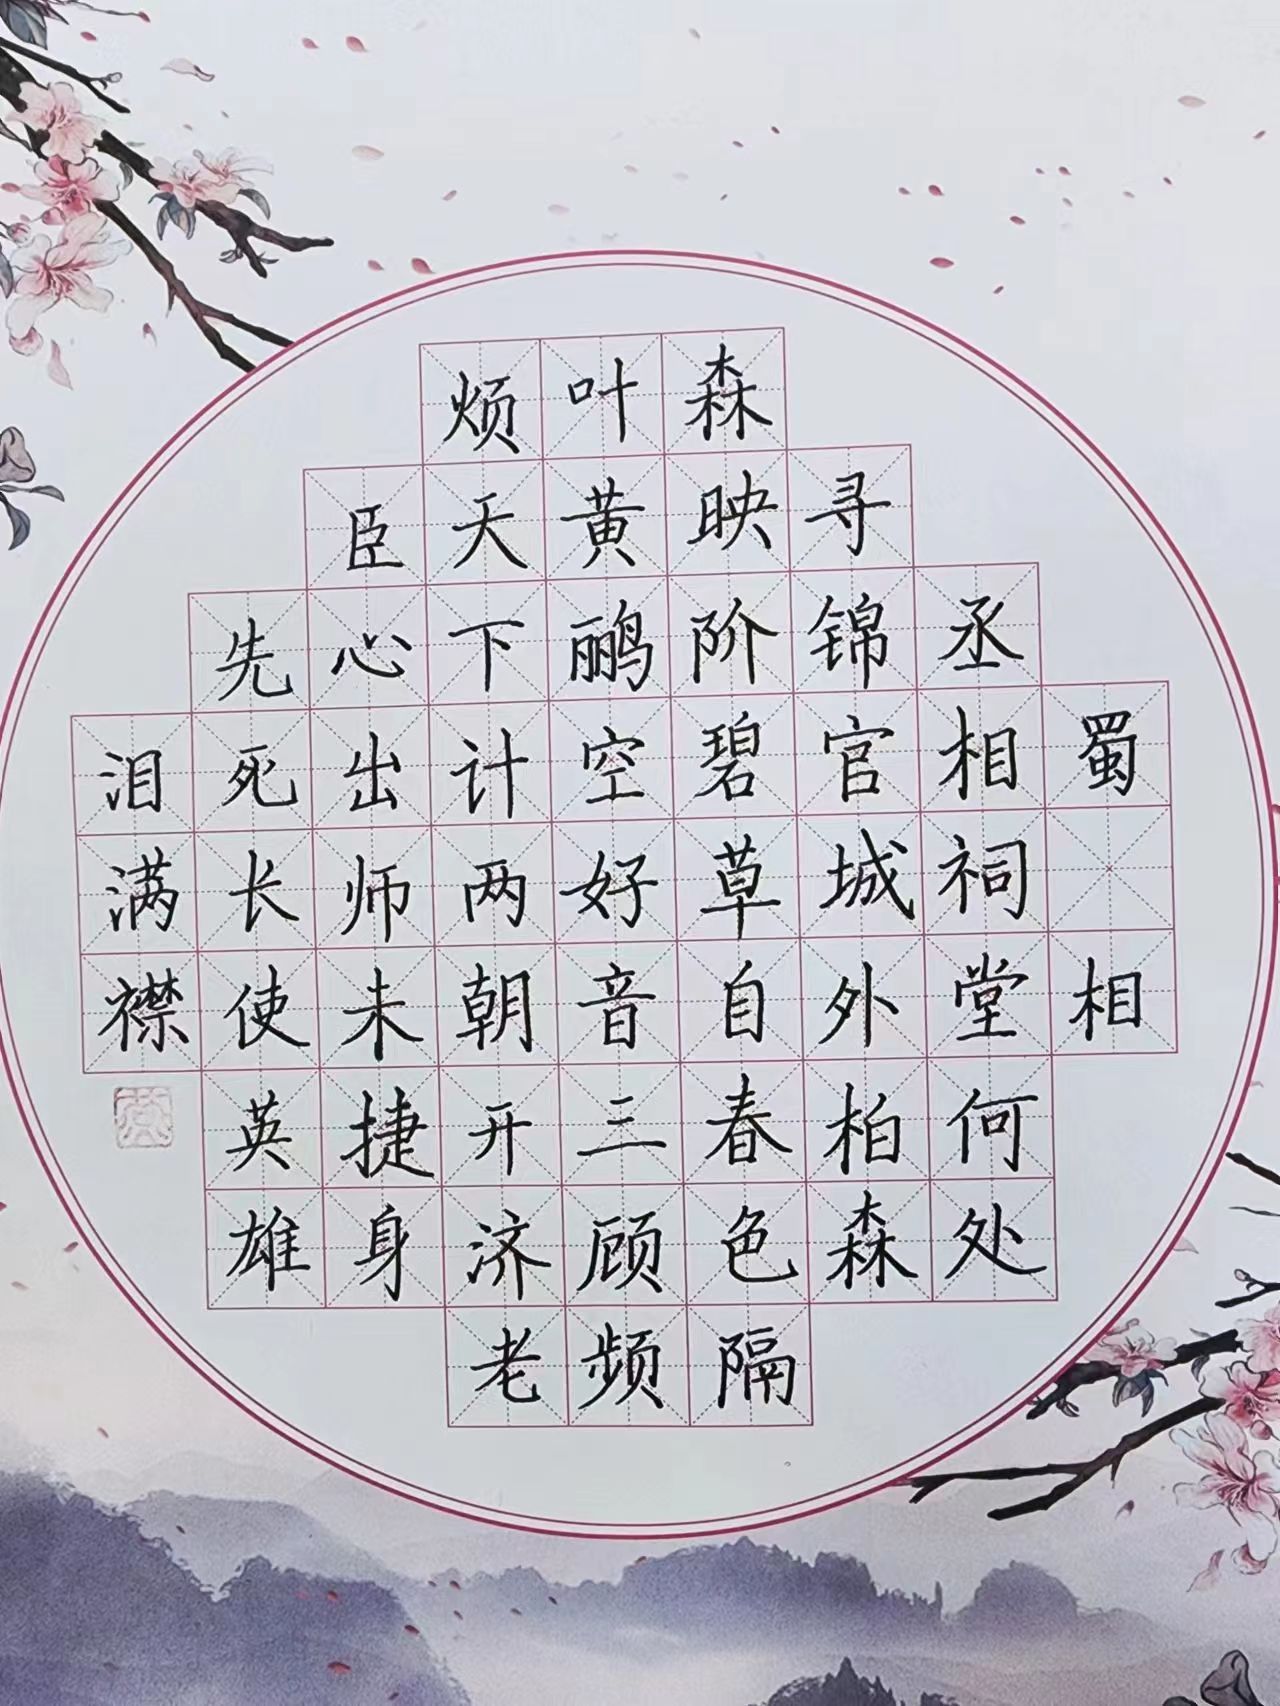 蜀 相
丞相祠堂何处
寻锦官城外柏森
森映阶碧草自春色隔
叶黄鹂空好音三顾频
烦天下计两朝开济老
臣心出师未捷身
先死长使英雄
泪满襟